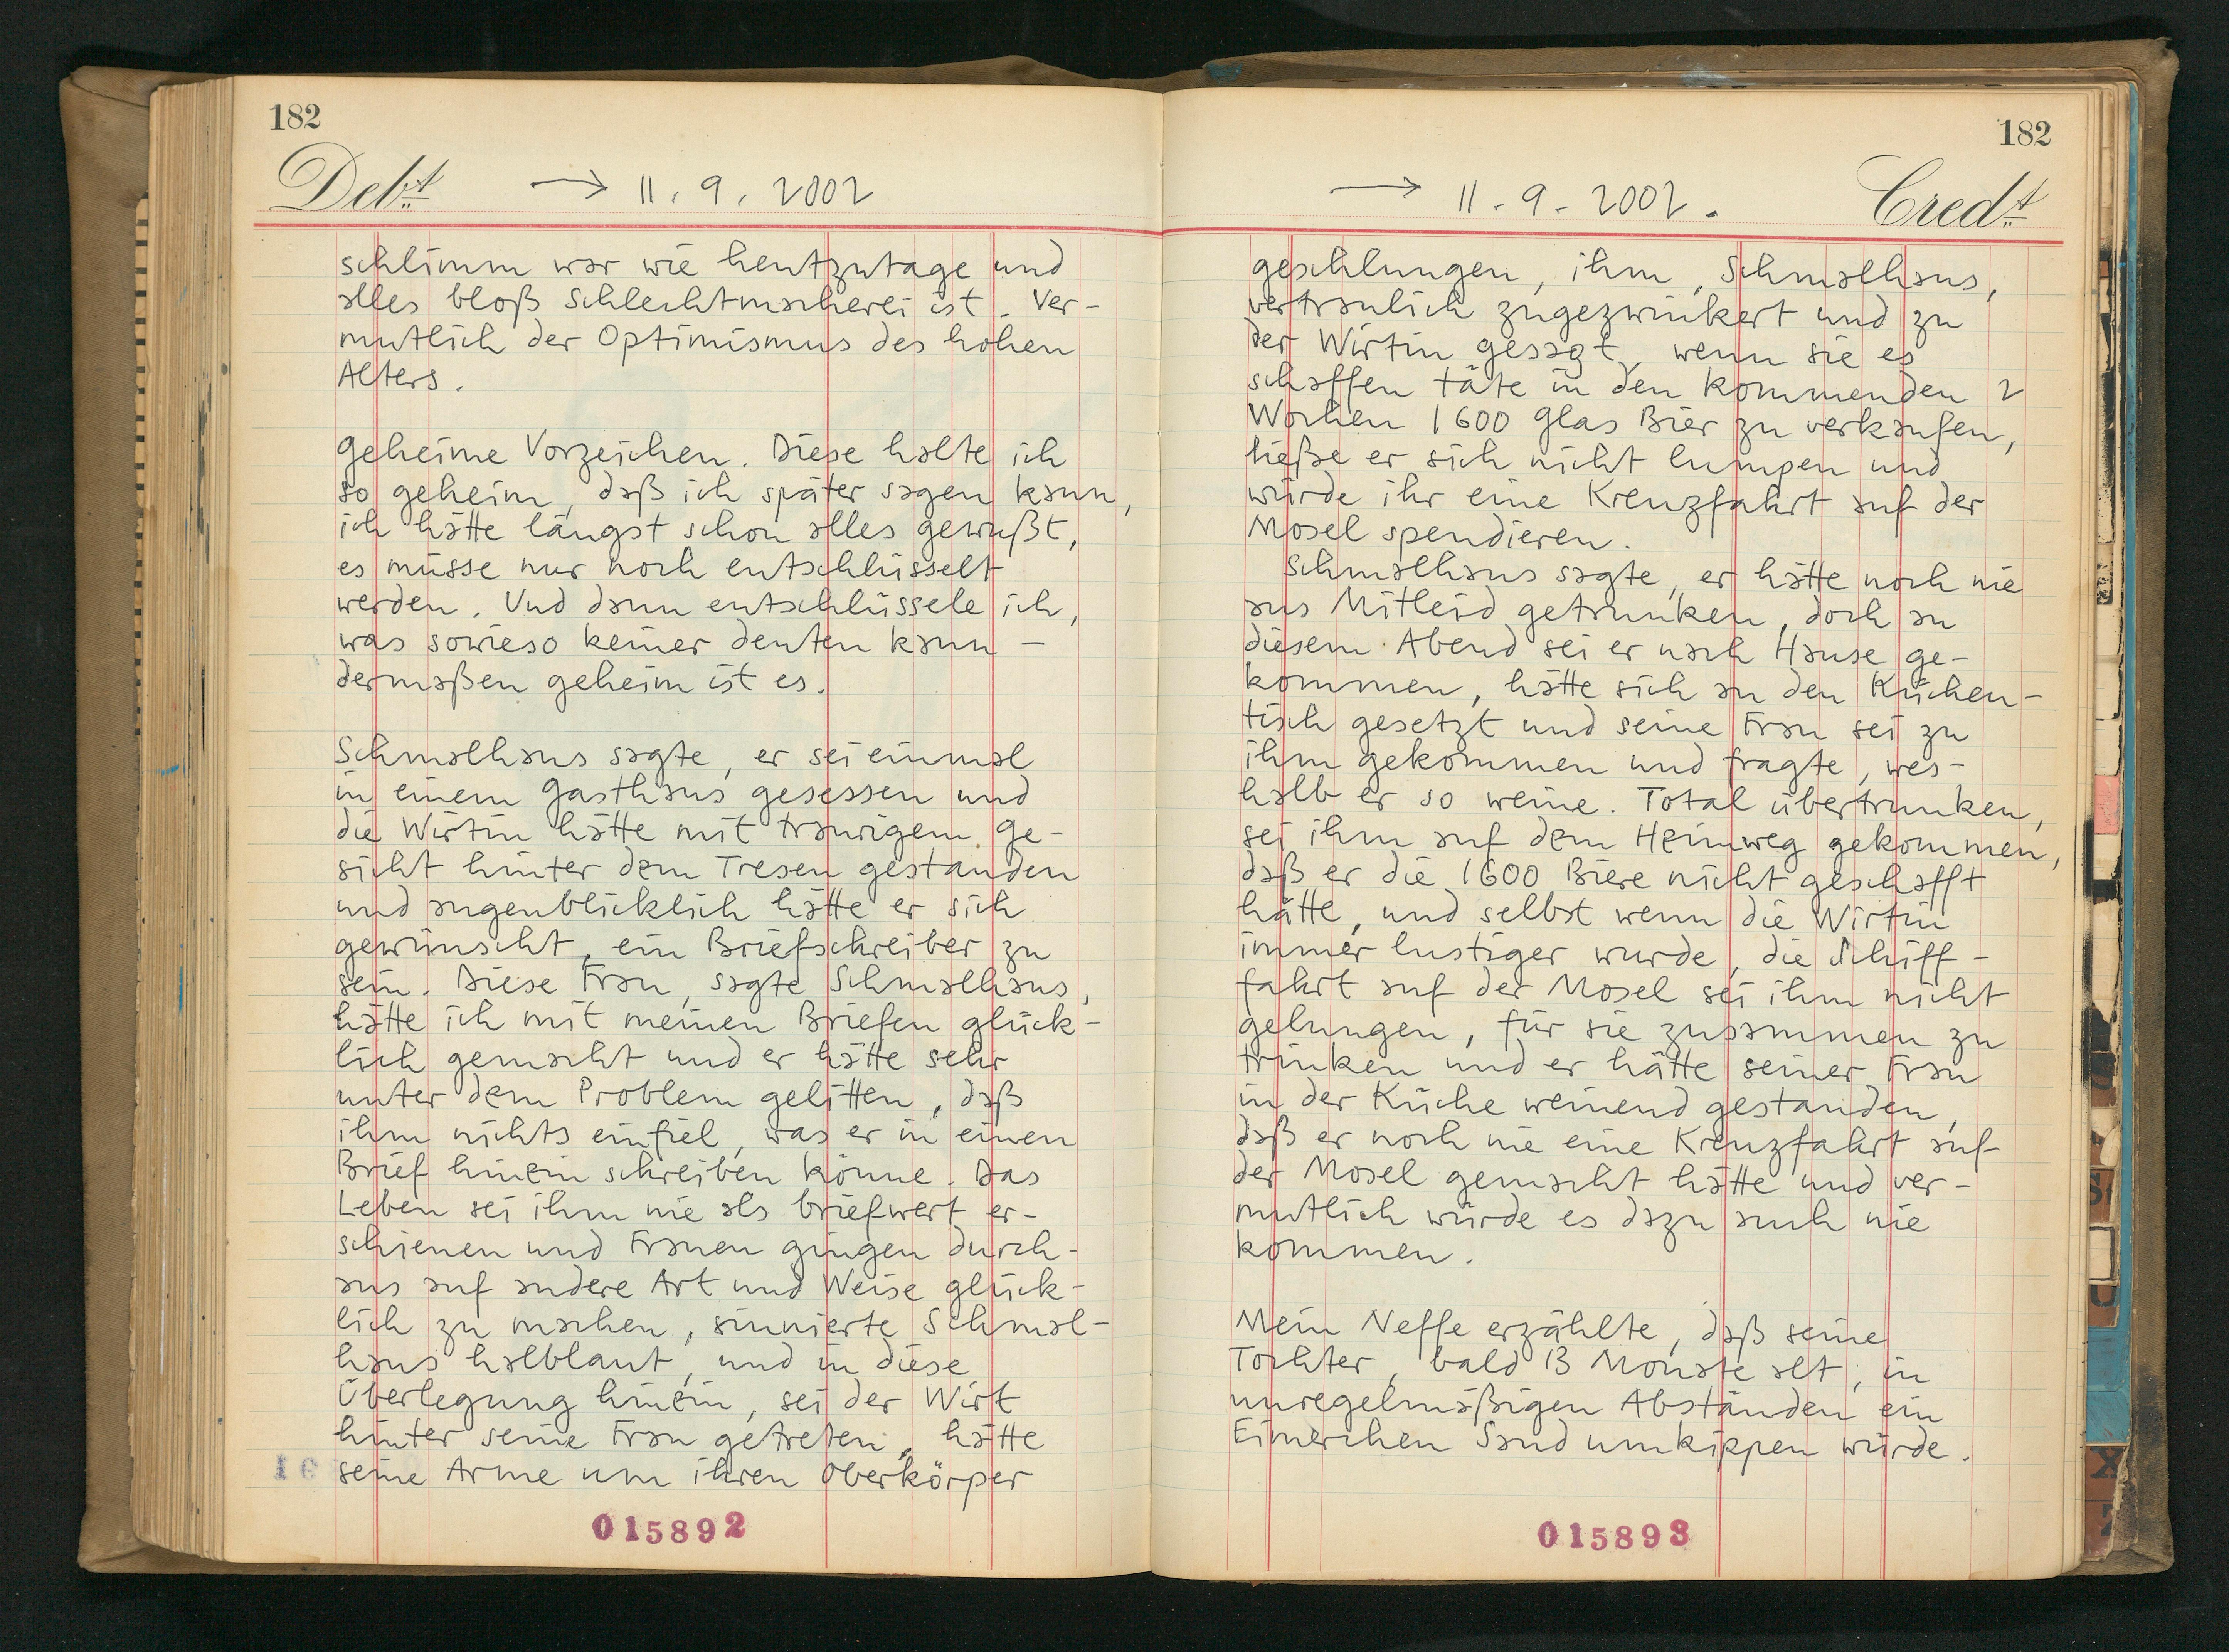 182
Debt
→ 11. 9. 2002
schlimm war wie heutzutage und
alles bloß Schlechtmacherei ist. Ver-
mutlich der Optimismus des hohen
Alters.
Geheime Vorzeichen. Diese halte ich
so geheim, daß ich später sagen kann,
ich hätte längst schon alles gewußt,
es müsse nur noch entschlüsselt
werden. Und dann entschlüssele ich,
was sowieso keiner deuten kann –
dermaßen geheim ist es.
Schmalhaus sagte, er sei einmal
in einem Gasthaus gesessen und
die Wirtin hätte mit traurigem Ge-
sicht hinter dem Tresen gestanden
und augenblicklich hätte er sich
gewünscht, ein Briefschreiber zu
sein. Diese Frau, sagte Schmalhaus,
hätte ich mit meinen Briefen glück-
lich gemacht und er hätte sehr
unter dem Problem gelitten, daß
ihm nichts einfiel, was er in einen
Brief hinein schreiben könne. Das
Leben sei ihm nie als briefwert er-
schienen und Frauen gingen durch-
aus auf andere Art und Weise glück-
lich zu machen, sinnierte Schmal-
haus halblaut, und in diese
Überlegung hinein, sei der Wirt
hinter seine Frau getreten, hätte
seine Arme um ihren Oberkörper
015892
182
→ 11. 9. 2002.
Credt
geschlungen, ihm, Schmalhaus,
vertraulich zugezwinkert und zu
der Wirtin gesagt, wenn sie es
schaffen täte in den kommenden 2
Wochen 1600 Glas Bier zu verkaufen,
ließe er sich nicht lumpen und
würde ihr eine Kreuzfahrt auf der
Mosel spendieren.
Schmalhaus sagte, er hätte noch nie
aus Mitleid getrunken, doch an
diesem Abend sei er nach Hause ge-
kommen, hätte sich an den Küchen-
tisch gesetzt und seine Frau sei zu
ihm gekommen und fragte, wes-
halb er so weine. Total übertrunken,
sei ihm auf dem Heimweg gekommen,
daß er die 1600 Biere nicht geschafft
hätte, und selbst wenn die Wirtin
immer lustiger wurde, die Schiff-
fahrt auf der Mosel sei ihm nicht
gelungen, für sie zusammen zu
trinken und er hätte seiner Frau
in der Küche weinend gestanden,
daß er noch nie eine Kreuzfahrt auf
der Mosel gemacht hätte und ver-
mutlich würde es dazu auch nie
kommen.
Mein Neffe erzählte, daß seine
Tochter, bald 13 Monate alt, in
unregelmäßigen Abständen ein
Eimerchen Sand umkippen würde.
015893